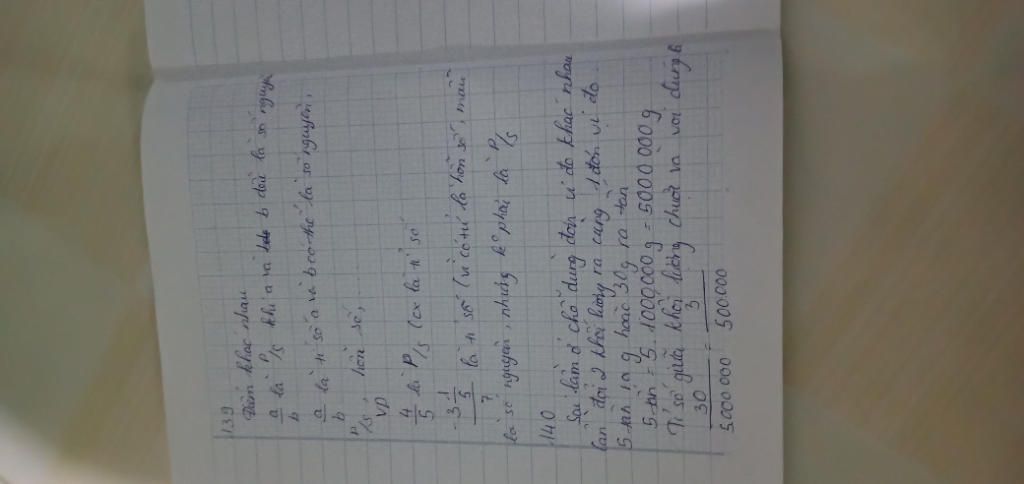 139
Điểm khác nhau
a/b là P/S khi a và b đều là số nguyê
a/b là tỉ số a và b có thể là số nguyên,
P/S, hỗn số, ...
VD
4/5 là P/S (cx là tỉ số
-3 1/5 / 7 là tỉ số (vì có tử là hỗn số, mẫu
là số nguyên, nhưng ko phải là P/S
140
Sai lầm ở chỗ dùng đơn vị đo khác nhau
cần đổi 2 khối lượng ra cùng 1 đơn vị đo.
5 tấn ra g hoặc 30g ra tấn
5 tấn = 5.1000000g = 5000000g
Tỉ số giữa khối lượng chuột và voi đúng là
30/5000000 = 3/500000